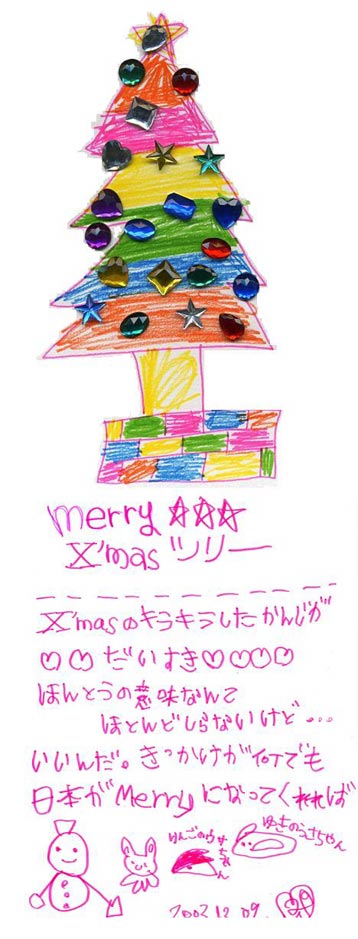 merry ☆☆☆
X'mas ツリー
X'masのキラキラしたかんじが
♡♡だいすき♡♡♡♡
ほんとうの意味なんて
ほとんどしらないけど…
いいんだ。きっかけが何でも
日本がMerryになってくれれば
りんごのウサちゃん
ゆきのうさちゃん
2002.12.09.